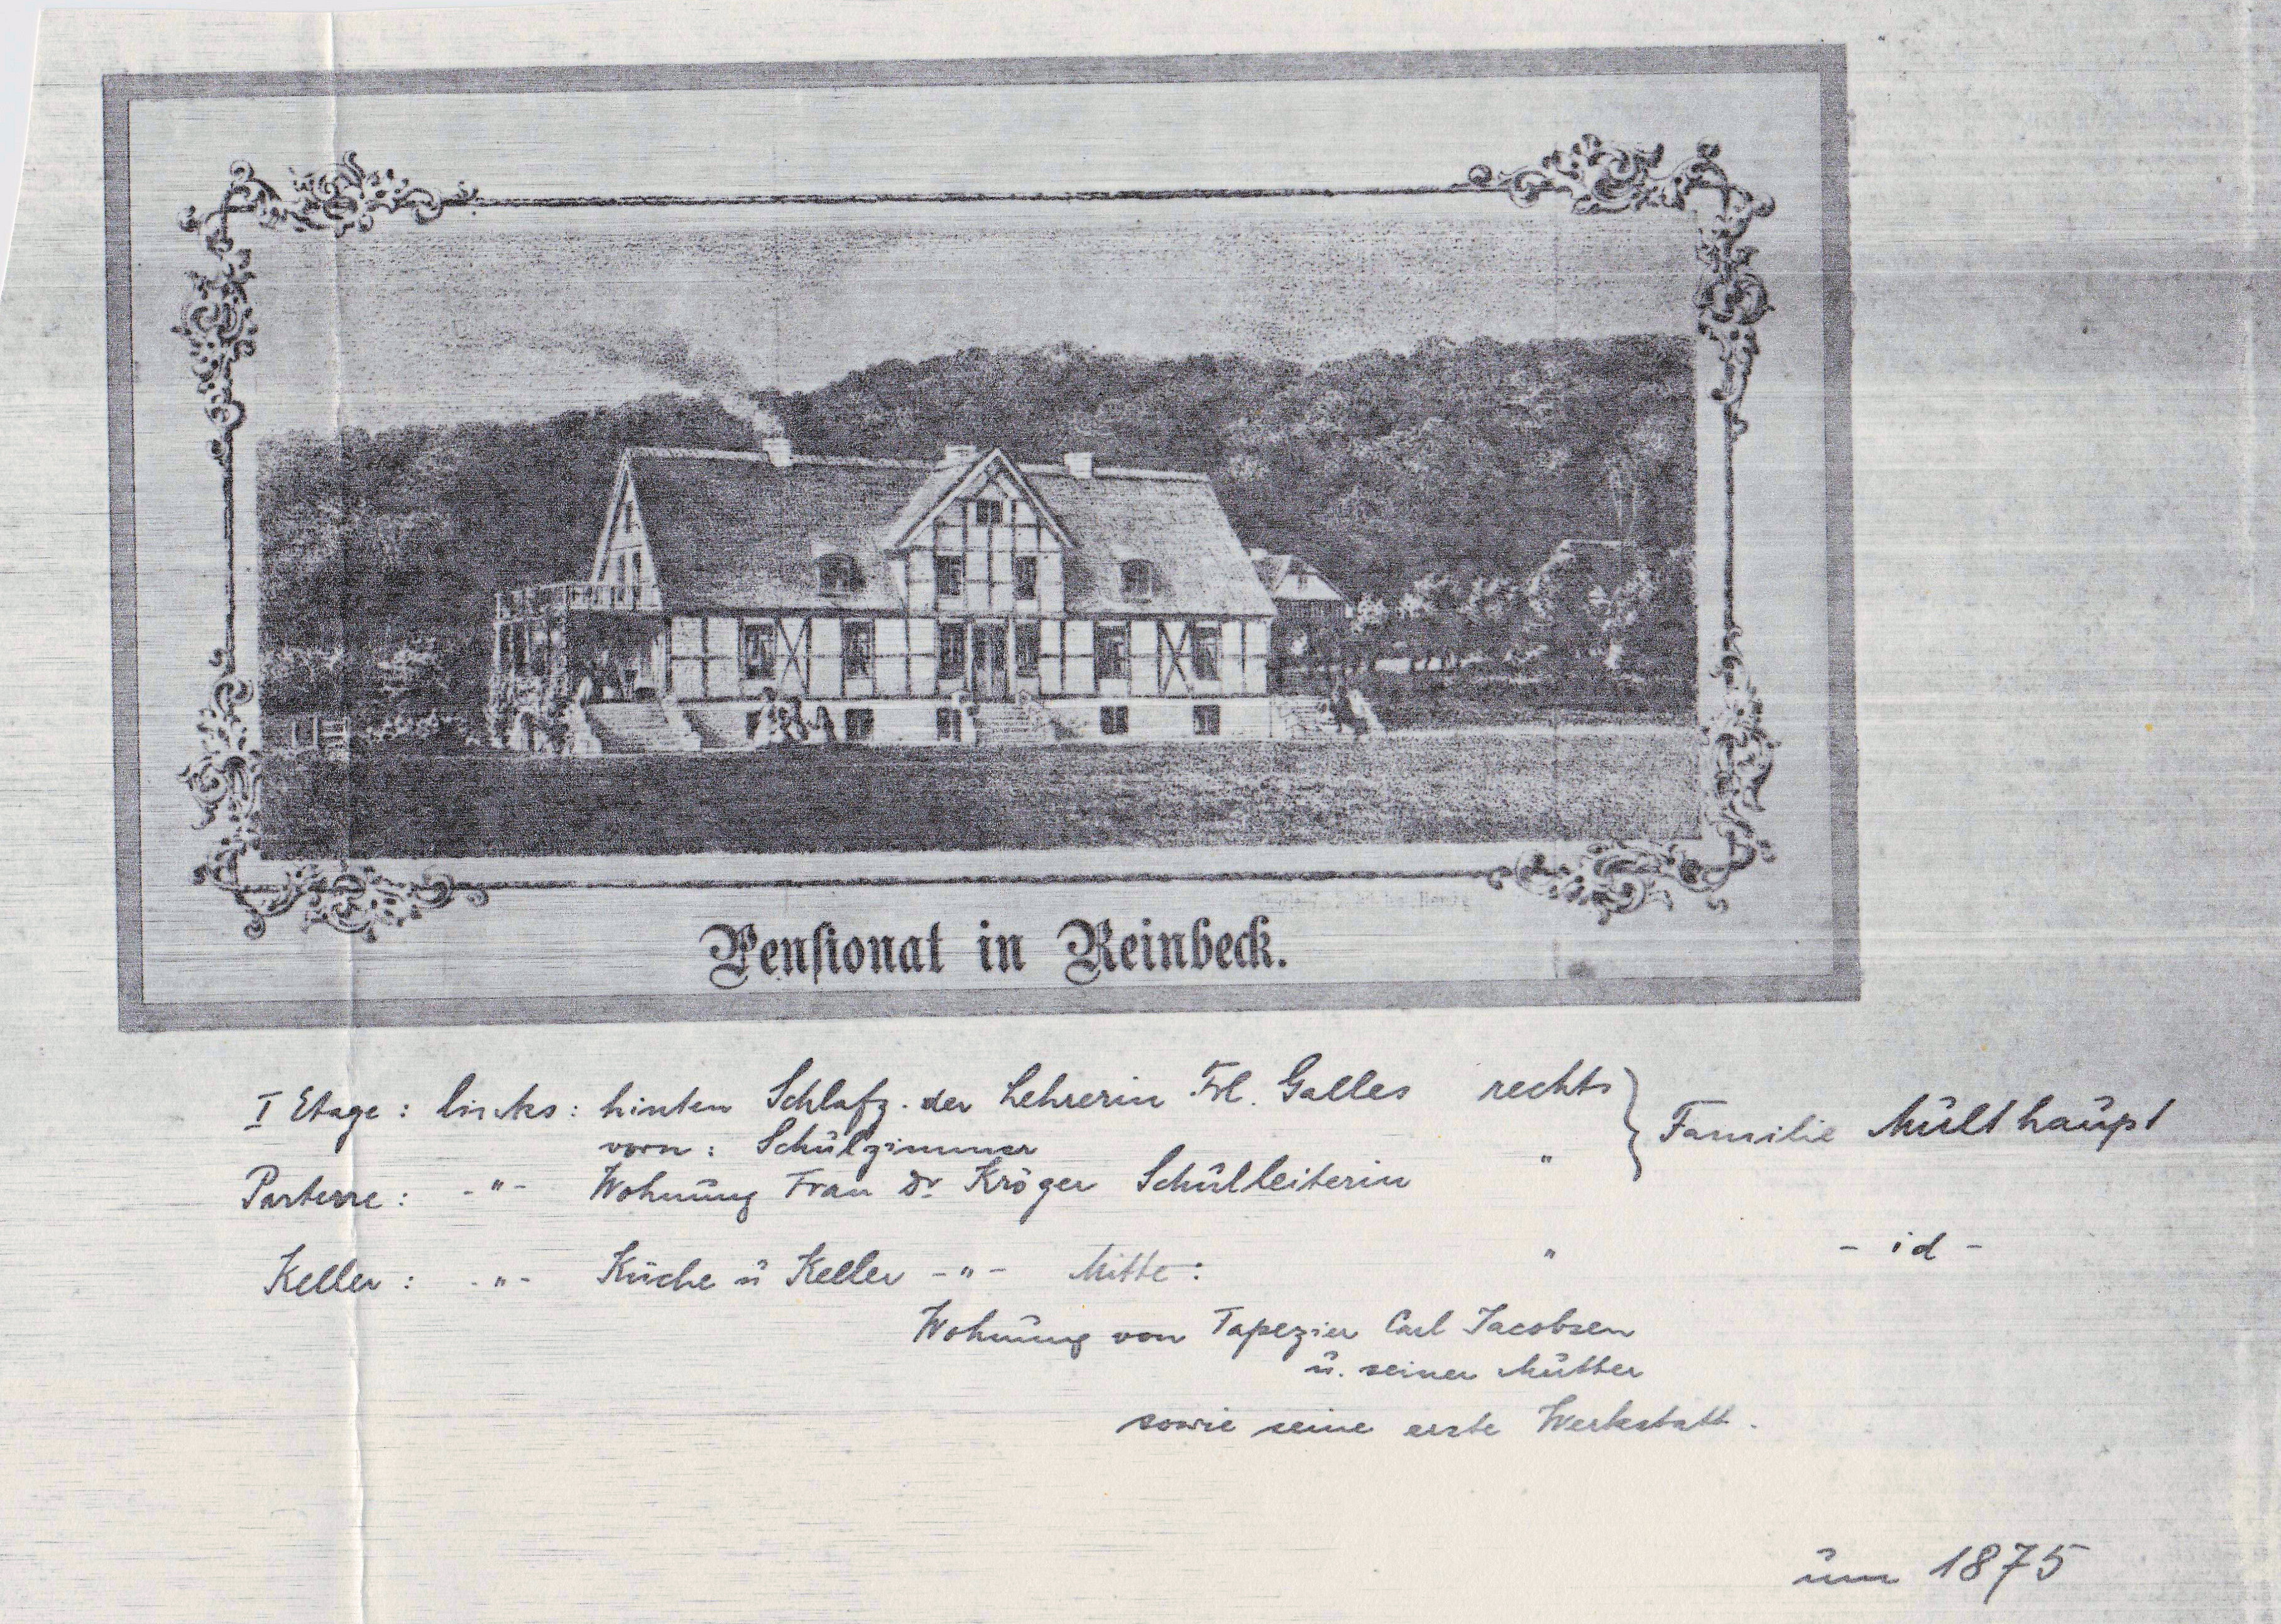 Pensionat in Reinbeck.
I Etage: links: hinten Schlafz. der Lehrerin Frl. Galles rechts } Familie Multhaupt
vorn: Schulzimmer
Parterre: -"- Wohnung Frau Dr Kröger Schulleiterin "
Keller: -"- Küche u Keller -"- Mitte: " - id -
Wohnung von Tapezier Carl Jacobsen
u. seiner Mutter
sowie seine erste Werkstatt.
um 1875